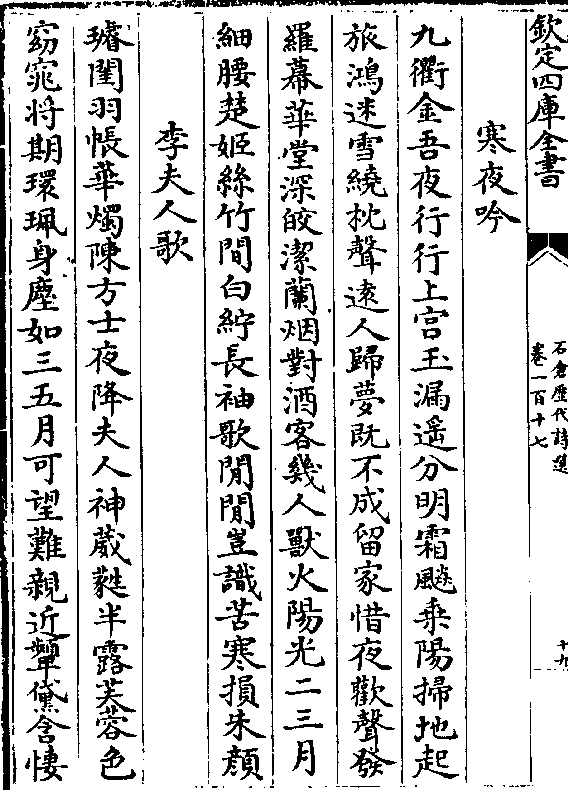 欽定四庫全書
石倉歷代詩選
卷一百十七
十九
寒夜吟
九衢金吾夜行行上宫玉漏遥分明霜飇乗陽掃地起
旅鴻迷雪繞枕聲遠人歸夢既不成留家惜夜歡聲發
羅幕華堂深皎潔蘭烟對酒客幾人獸火陽光二三月
細腰楚姬絲竹間白紵長袖歌閒閒豈識苦寒損朱顔
李夫人歌
璿閨羽帳華燭陳方士夜降夫人神葳蕤半露芙蓉色
窈窕将期環珮身麈如三五月可望難親近顰黛含悽